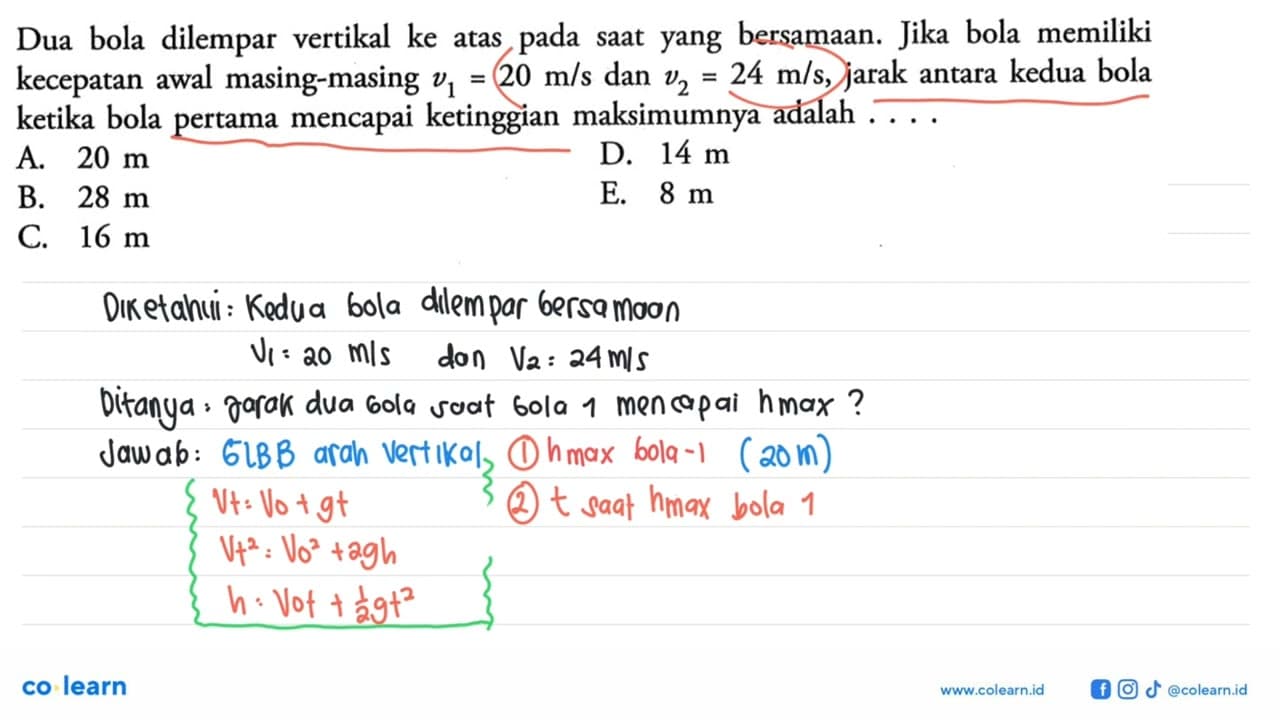 Dua bola dilempar vertikal ke atas pada saat yang bersamaan. Jika bola memiliki
kecepatan awal masing-masing v₁ = 20 m/s dan v₂ = 24 m/s, jarak antara kedua bola
ketika bola pertama mencapai ketinggian maksimumnya adalah . . . .
A. 20 m
B. 28 m
C. 16 m
D. 14 m
E. 8 m
Diketahui : Kedua bola dilempar bersamaan
V₁ = 20 m/s dan V₂ = 24 m/s
Ditanya : jarak dua bola saat bola 1 mencapai hmax ?
Jawab : GLBB arah vertikal, ① hmax bola-1 (20 m)
Vt = Vo + gt
② t saat hmax bola 1
Vt² = Vo² + 2gh
h = Vot + ½gt²
co learn
www.colearn.id
@colearn.id